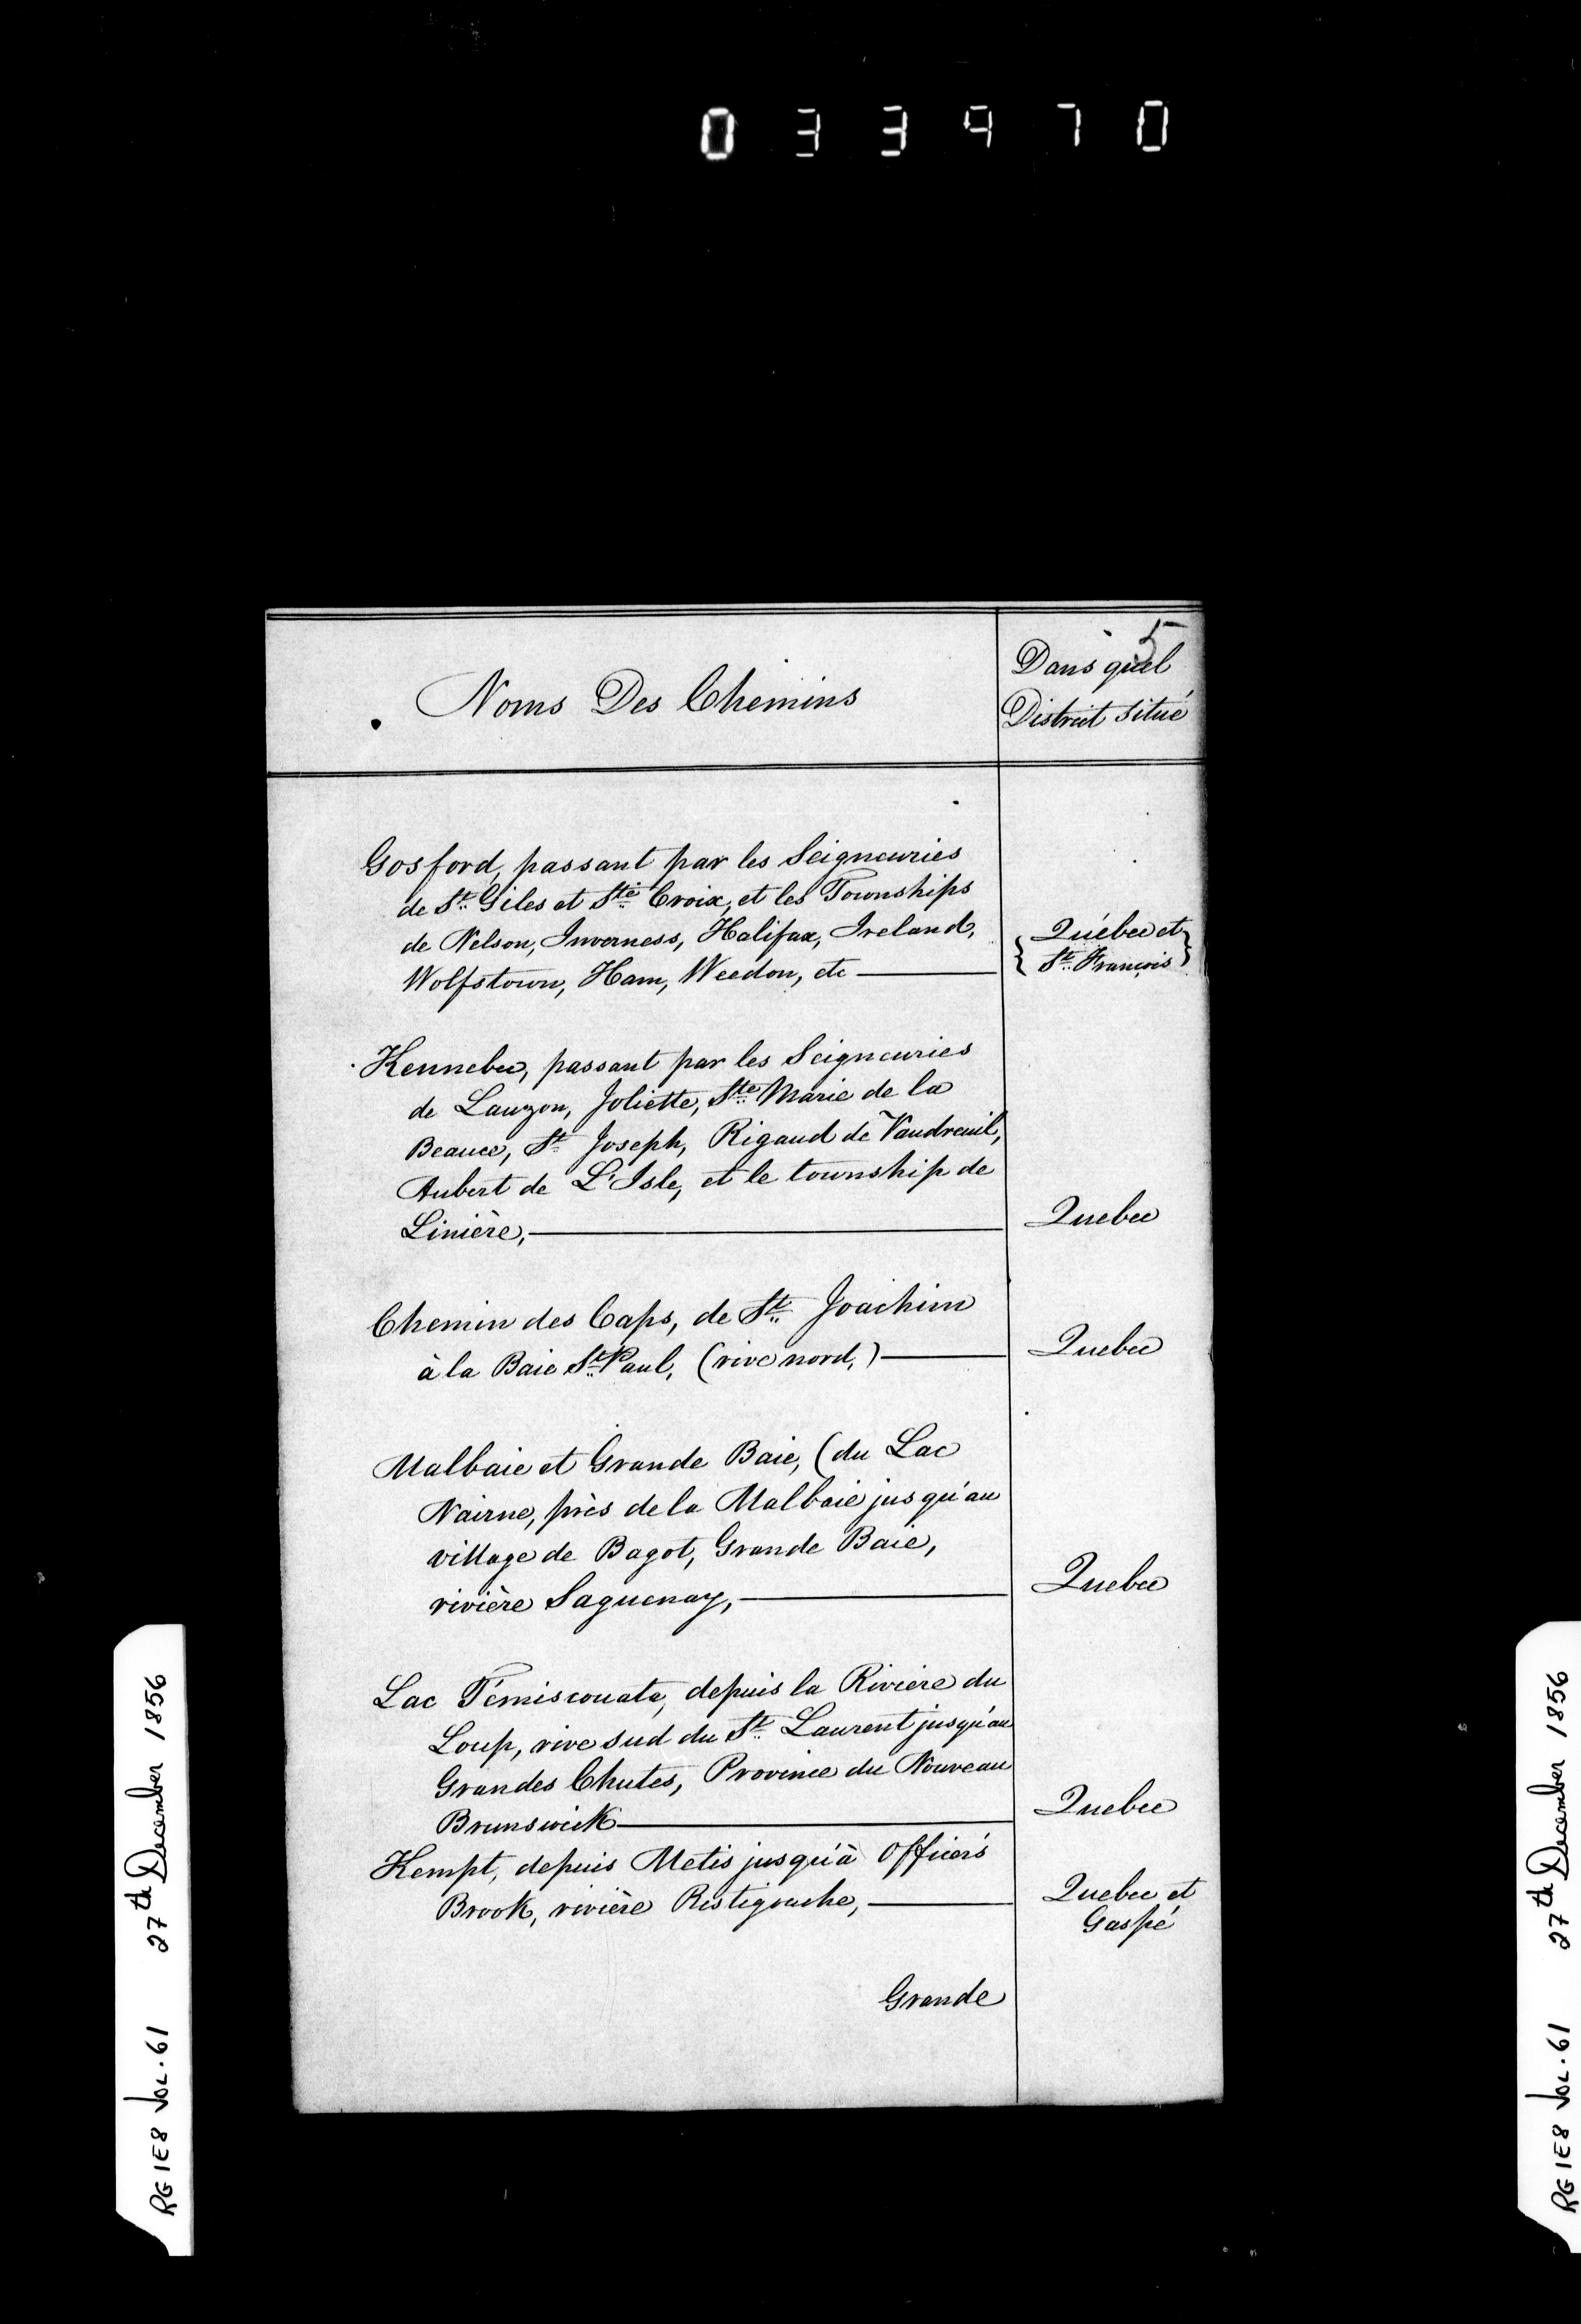 033970
5
Noms Des Chemins
Dans quel
District situé
Gosford, passant par les Seigneuries
de St. Giles et Ste Croix, et les Townships
de Nelson, Inverness, Halifax, Ireland,
Wolfstown, Ham, Weedon, etc
Québec et
St. François
Kennebec, passant par les Seigneuries
de Lauzon, Joliette, Ste Marie de la
Beauce, St Joseph, Rigaud de Vaudreuil,
Aubert de L'Isle, et le township de
Linière,
Quebec
Chemin des Caps, de St. Joachim
à la Baie St. Paul, (rive nord,)
Quebec
Malbaie et Grande Baie, (du Lac
Nairne, près de la Malbaie jusqu'au
village de Bagot, Grande Baie,
rivière Saguenay,
Quebec
Lac Témiscouata, depuis la Rivière du
Loup, rive sud du St. Laurent jusqu'au
Grandes Chutes, Province du Nouveau
Brunswick
Quebec
Kempt, depuis Metis jusqu'à Officer's
Brook, rivière Ristigouche,
Quebec et
Gaspé
Grande
RG 1E8 Vol. 61 27th December 1856
RG 1E8 Vol. 61 27th December 1856